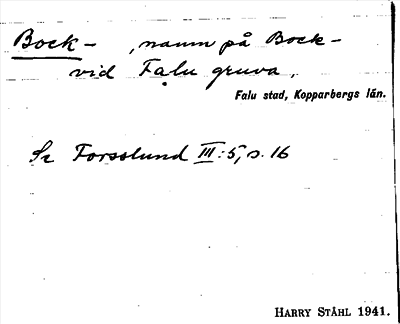 Bock- , namn på Bock-
vid Falu gruva,
Falu stad, Kopparbergs län.
Se Forsslund III:5, s. 16
HARRY STÅHL 1941.